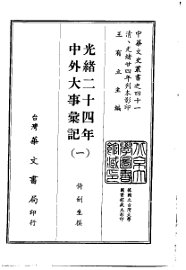 中華文史叢書之四十一
清‧光緒廿四年刊本影印
王有立主編
光緒二十四年
中外大事彙記
(一)
倚劍生撰
台灣華文書局印行